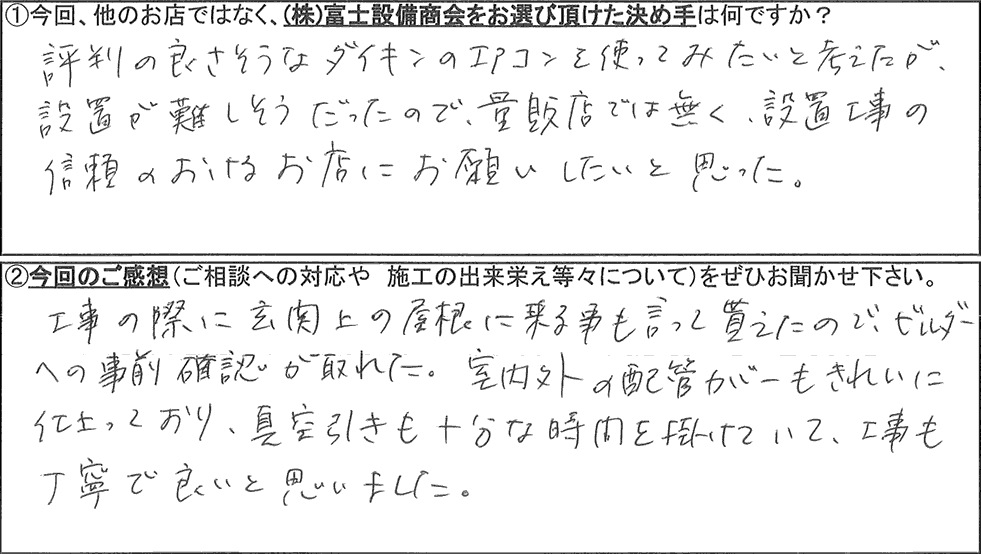 ①今回、他のお店ではなく、(株)富士設備商会をお選び頂けた決め手は何ですか？
評判の良さそうなダイキンのエアコンを使ってみたいと考えたが、
設置が難しそうだったので、量販店では無く、設置工事の
信頼のおけるお店にお願いしたいと思った。
②今回のご感想(ご相談への対応や 施工の出来栄え等々について)をぜひお聞かせ下さい。
工事の際に玄関上の屋根に乗る事も言って貰えたので、ビルダー
への事前確認が取れた。室内外の配管カバーもきれいに
仕上っており、真空引きも十分な時間を掛けていて、工事も
丁寧で良いと思いました。